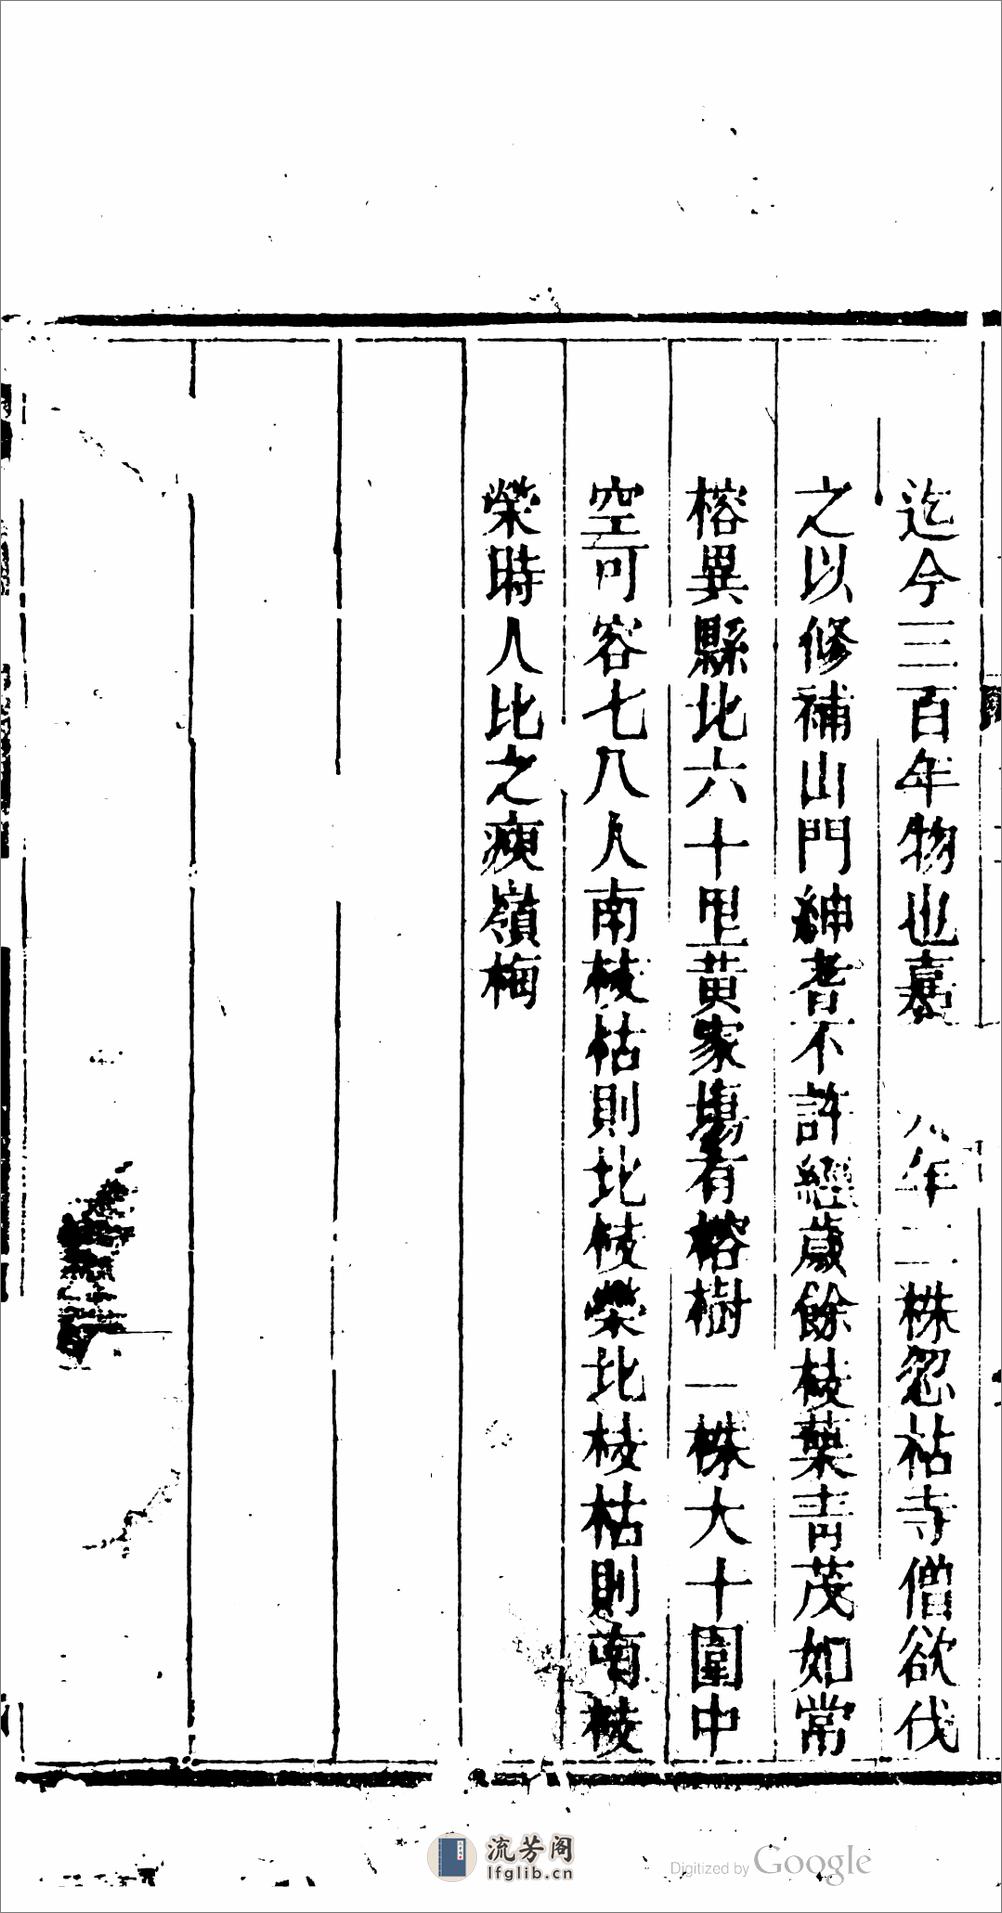 迄今三百年物也嘉 八年二株忽枯寺僧欲伐
之以修補山門紳耆不許經歲餘枝葉青茂如常
榕異縣北六十里黃家塲有榕樹一株大十圍中
空可容七八人南枝枯則北枝榮北枝枯則南枝
榮時人比之庾嶺梅
流芳阁
lfglib.cn
Digitized by Google